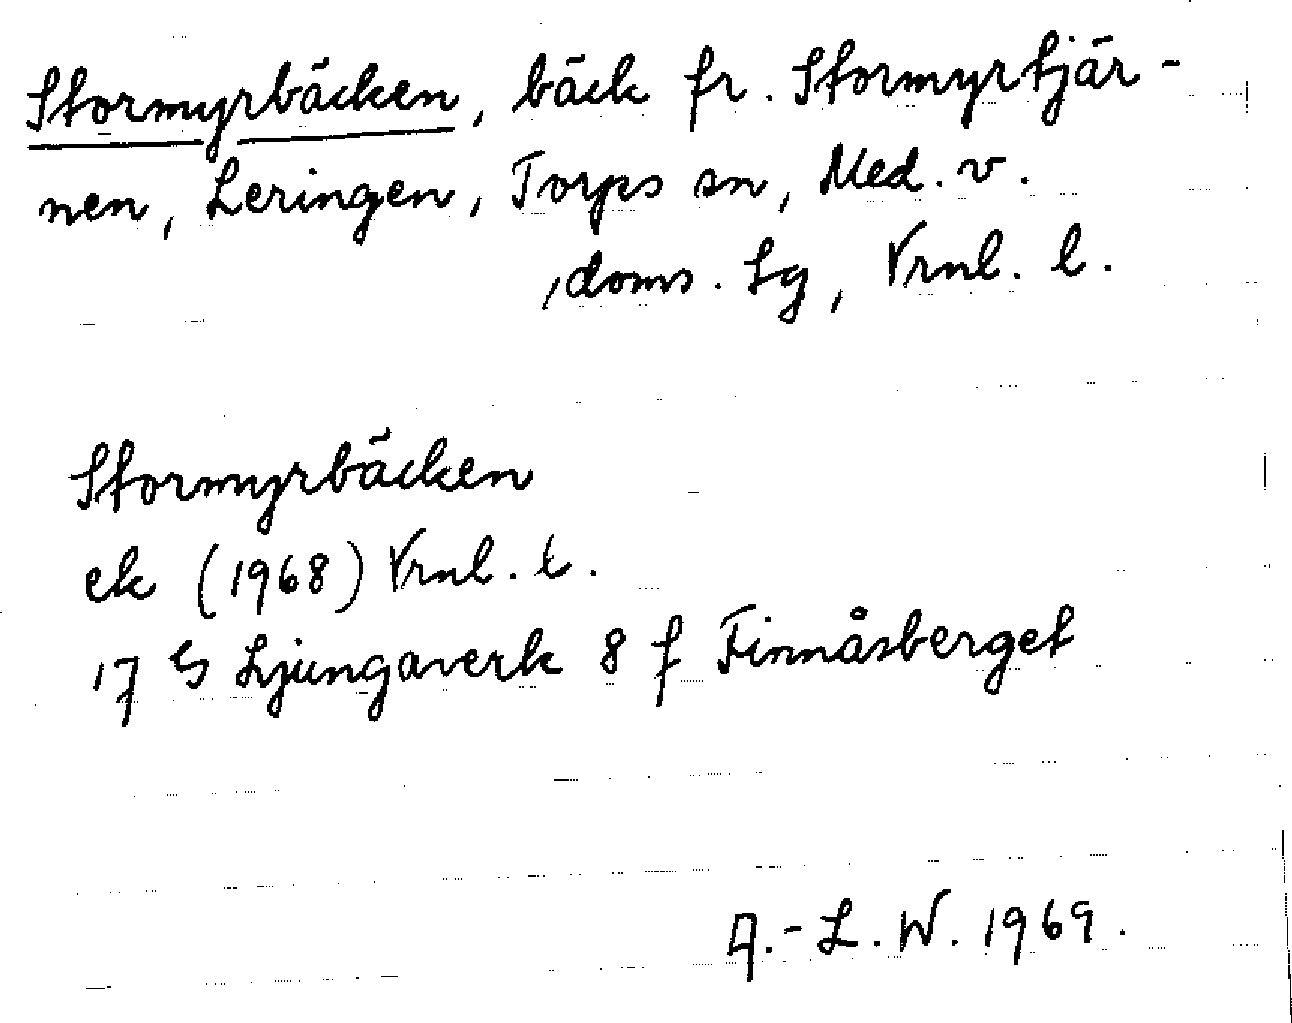 Stormyrbäcken, bäck fr. Stormyrtjär-
nen, Leringen, Torps sn, Med. v.
doms. Lg, Vrnl. l.
Stormyrbäcken
ek (1968) Vrnl. l.
17 G Ljungaverk 8 f Finnåsberget
A.-L. W. 1969.